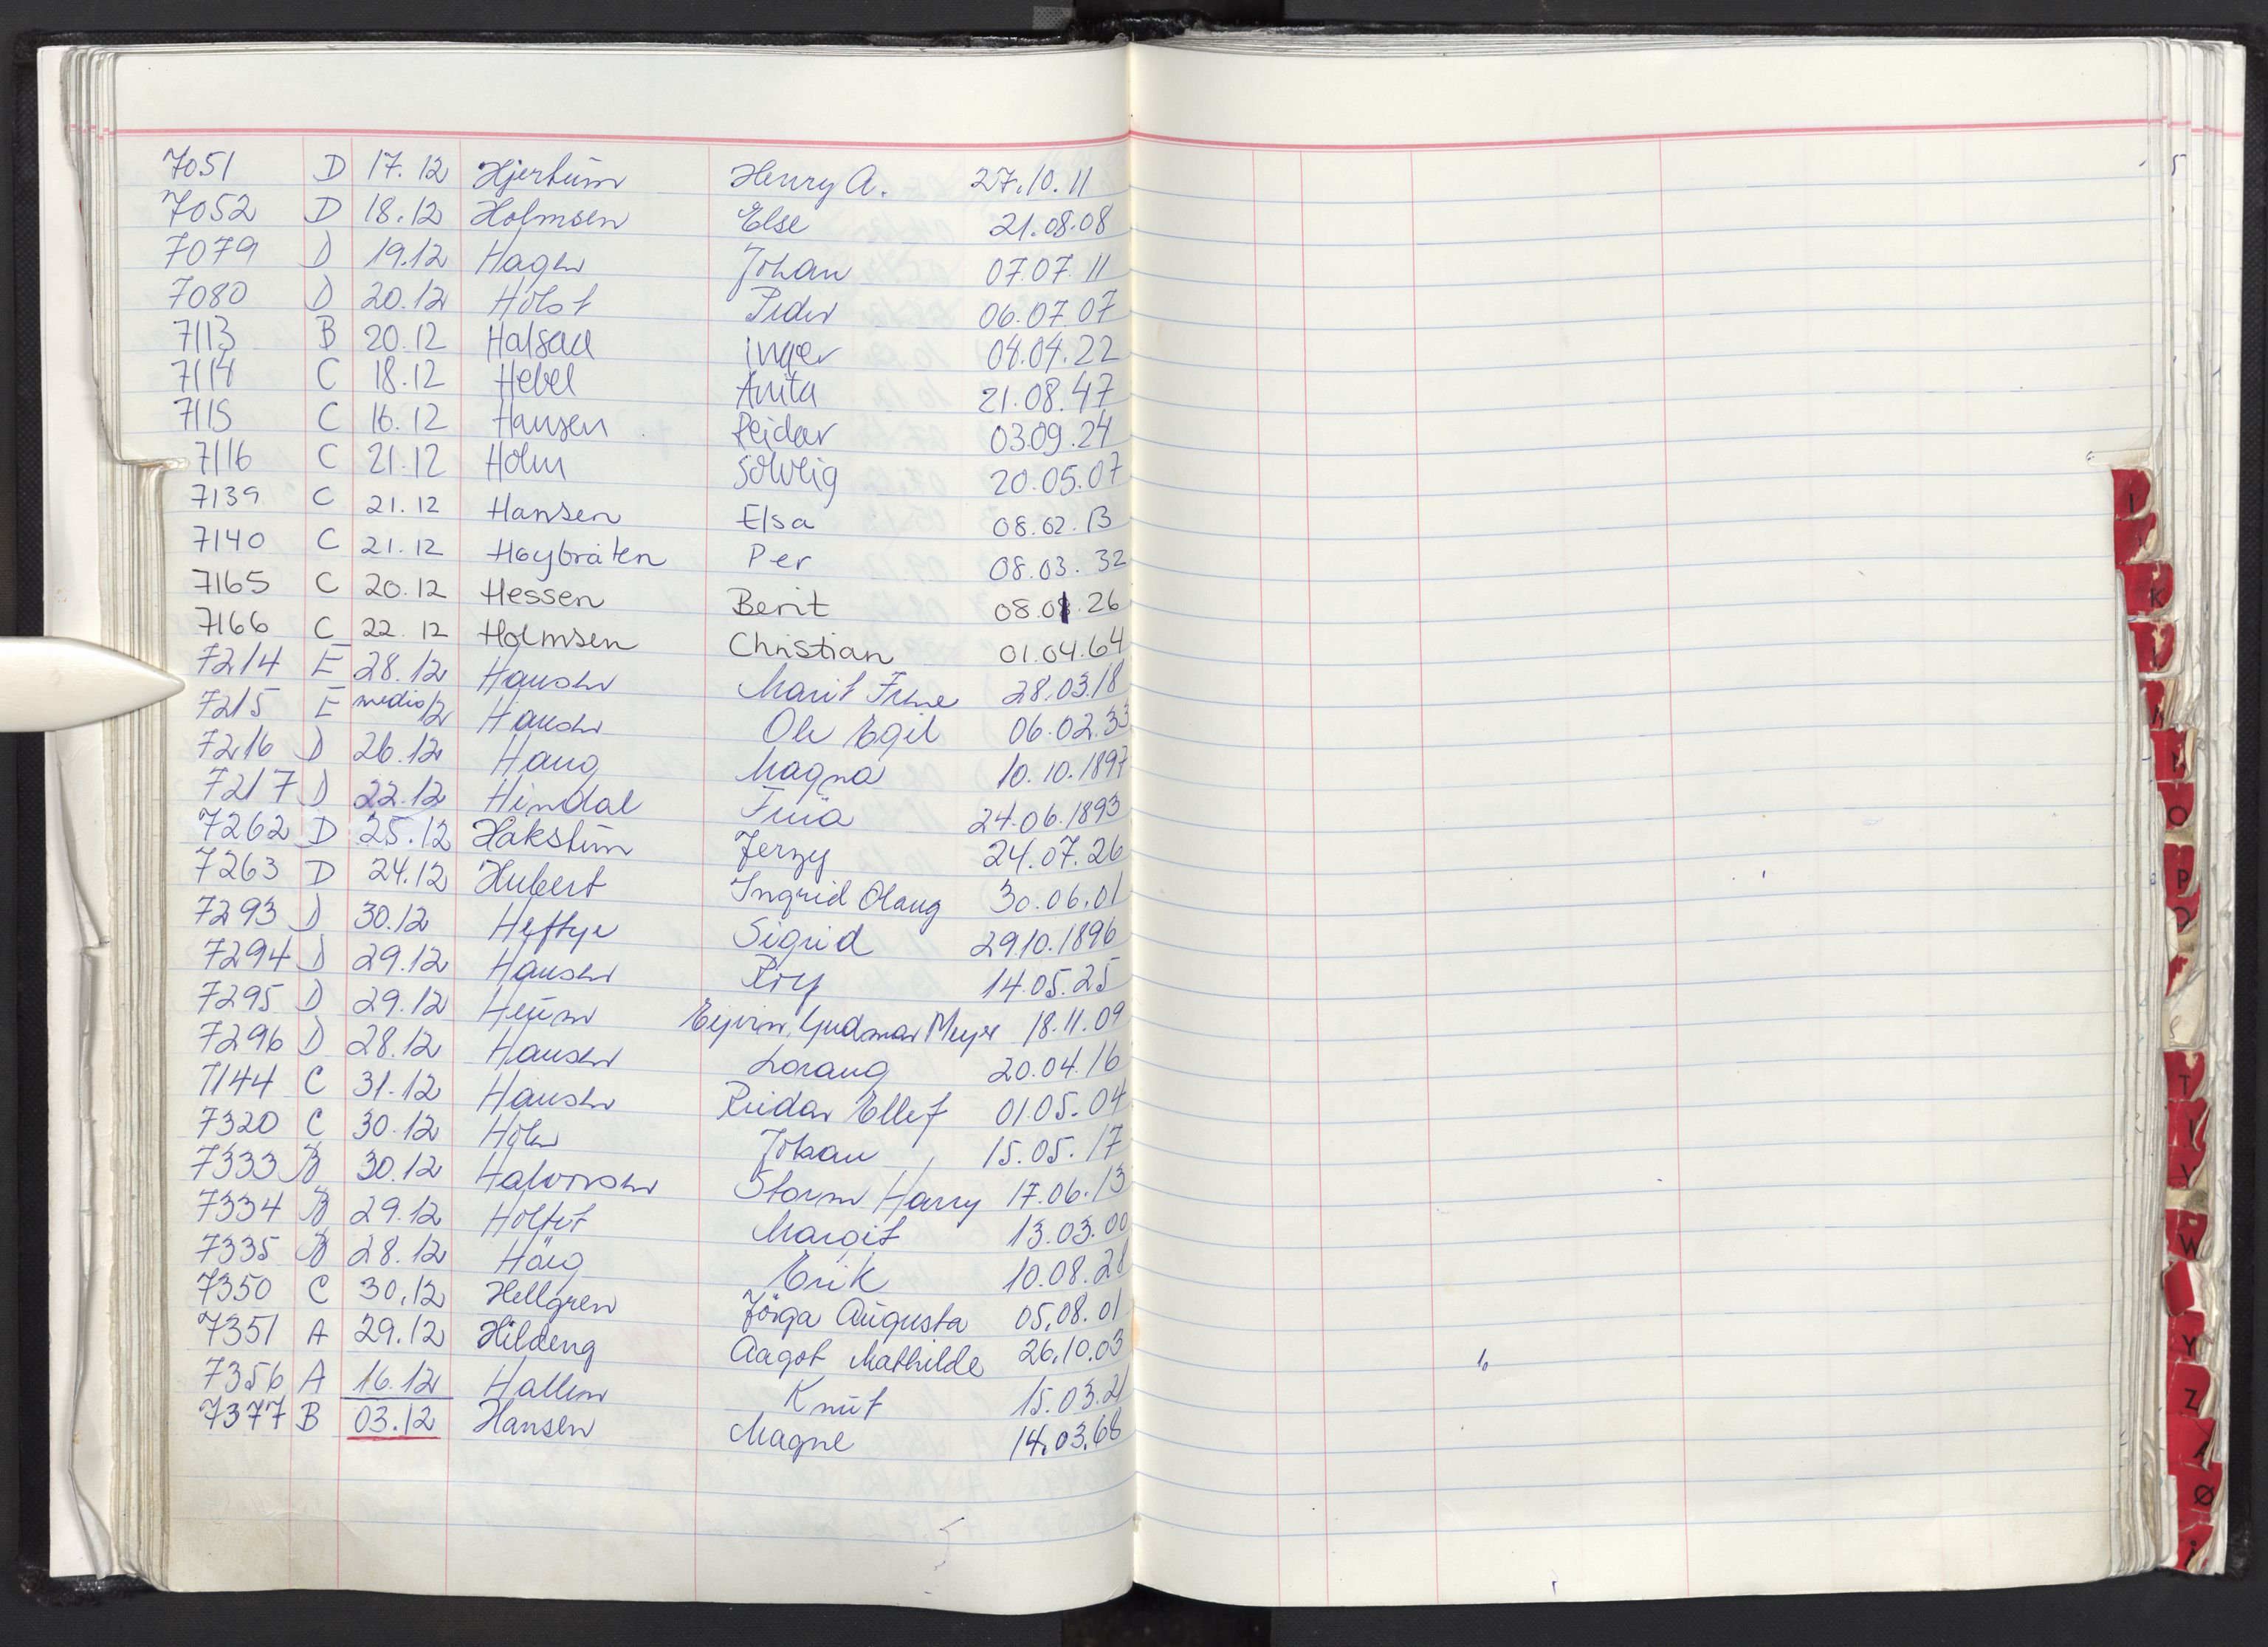 7051 D 17.12 Hjertum Henry A. 27.10.11
7052 D 18.12 Holmsen Else 21.08.08
7079 D 19.12 Hagen Johan 07.07.11
7080 D 20.12 Holst Peder 06.07.07
7113 B 20.12 Halsaa Inger 04.04.22
7114 C 18.12 Hebel Anita 21.08.47
7115 C 16.12 Hansen Reidar 03.09.24
7116 C 21.12 Holm Solveig 20.05.07
7139 C 21.12 Hansen Elsa 08.02.13
7140 C 21.12 Høybråten Per 08.03.32
7165 C 20.12 Hessen Berit 08.01.26
7166 C 22.12 Holmsen Christian 01.04.64
7214 E 28.12 Hansen Marit Irene 28.03.18
7215 E medio/12 Hansen Ole Egil 06.02.33
7216 D 26.12 Haug Magna 10.10.1897
7217 D 22.12 Hindal 24.06.1893
7262 D 25.12 Jerzy 24.07.26
7263 D 24.12 Hubert Ingrid Olaug 30.06.01
7293 D 30.12 Heftye Sigrid 29.10.1896
7294 D 29.12 Hansen Roy 14.05.25
7295 D 29.12 Heum Gudmar Meyer 18.11.09
7296 D 28.12 Hansen Lorang 20.04.16
7144 C 31.12 Hansen Reidar Ellef 01.05.04
7320 C 30.12 Johan 15.05.17
7333 B 30.12 Halvorsen Storm Harry 17.06.13
7334 B 29.12 Holtet Margit 13.03.00
7335 B 28.12 Erik 10.08.28
7350 C 30.12 Hellgren Jörga Augusta 05.08.01
7351 A 29.12 Hildeng Aagot Mathilde 26.10.03
7356 A 16.12 Hallem Knut 15.03.21
7377 B 03.12 Hansen Magne 14.03.68
I
K
O
P
T
V
W
Y
Z
Ø